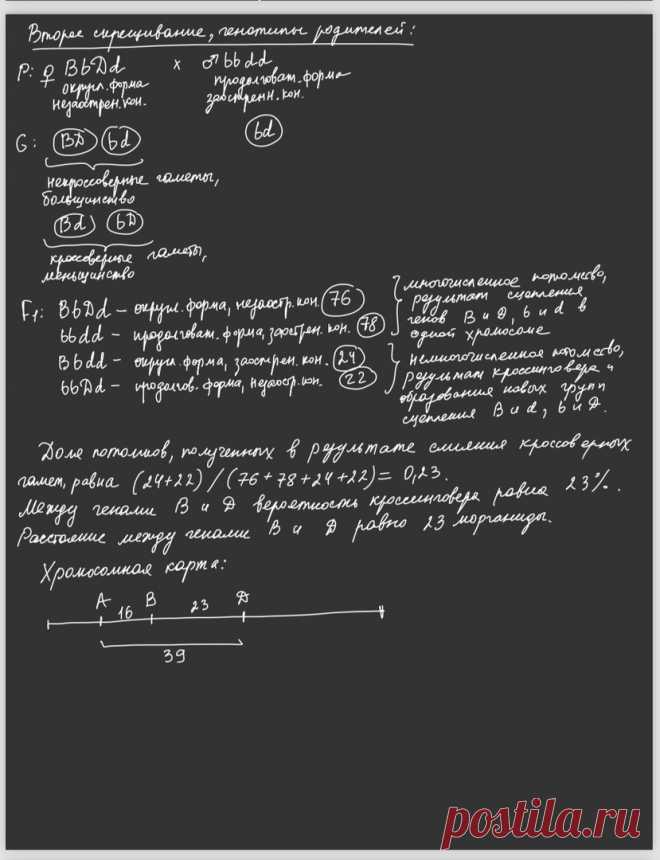 Второе скрещивание, генотипы родителей:
P: ♀ BbDd x ♂ bbdd
округл. форма продолговат. форма
незаострен. кон. заострен. кон.
G: BD bd bd
некроссоверные гаметы,
большинство
Bd bD
кроссоверные гаметы,
меньшинство
F1: BbDd – округл. форма, незаостр. кон. 76
bbdd – продолговат. форма, заострен. кон. 78
Bbdd – округл. форма, заострен. кон. 24
bbDd – продолгов. форма, незаостр. кон. 22
многочисленное потомство,
результат сцепления
генов B и D, b и d в
одной хромосоме
немногочисленное потомство,
результат кроссинговера и
образования новых групп
сцепления B и d, b и D.
Доля потомков, полученных в результате слияния кроссоверных
гамет, равна (24+22)/(76+78+24+22)=0,23.
Между генами B и D вероятность кроссинговера равна 23%.
Расстояние между генами B и D равно 23 морганиды.
Хромосомная карта:
A B D
16 23
39
postila.ru